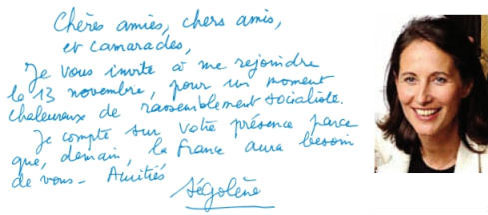 Chères amies, chers amis,
et camarades,
Je vous invite à me rejoindre
le 13 novembre, pour un moment
chaleureux de rassemblement socialiste.
Je compte sur votre présence parce
que, demain, la France aura besoin
de vous - Amitiés
Ségolène